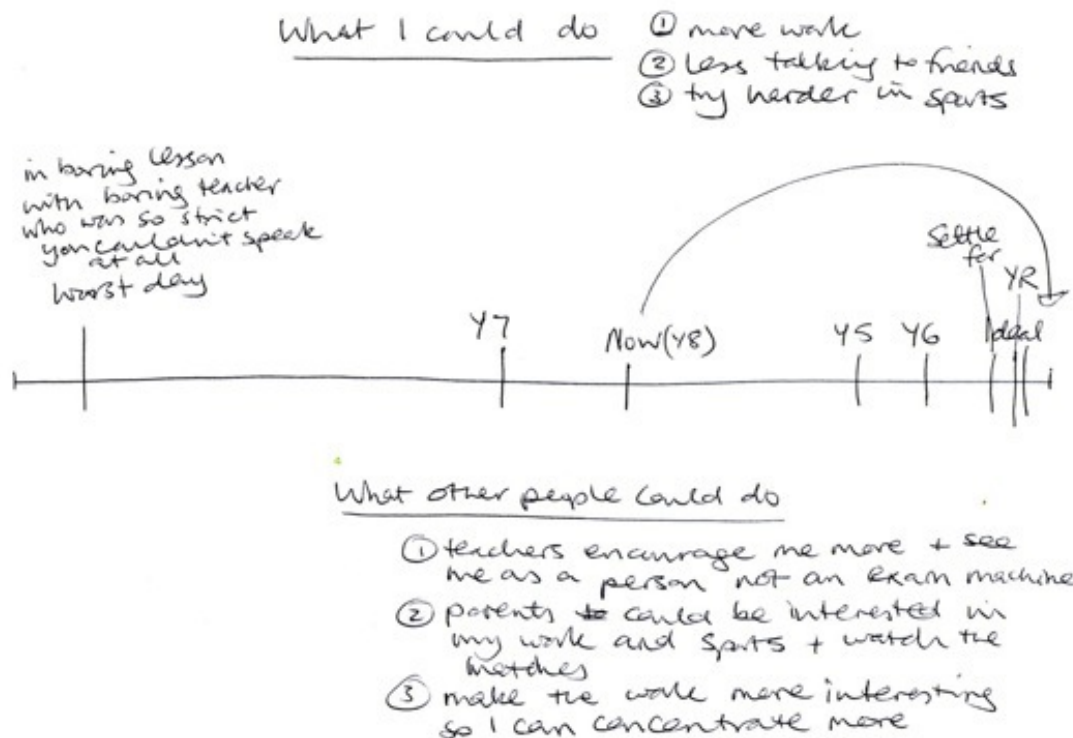 What I could do
① more work
② less talking to friends
③ try harder in sports
in boring lesson
with boring teacher
who was so strict
you couldn't speak
at all
worst day
Y7
Now (Y8)
Y5
Y6
Settle
for
YR
Ideal
What other people could do
① teachers encourage me more + see
me as a person not an exam machine
② parents to could be interested in
my work and sports + watch the
matches
③ make the work more interesting
so I can concentrate more